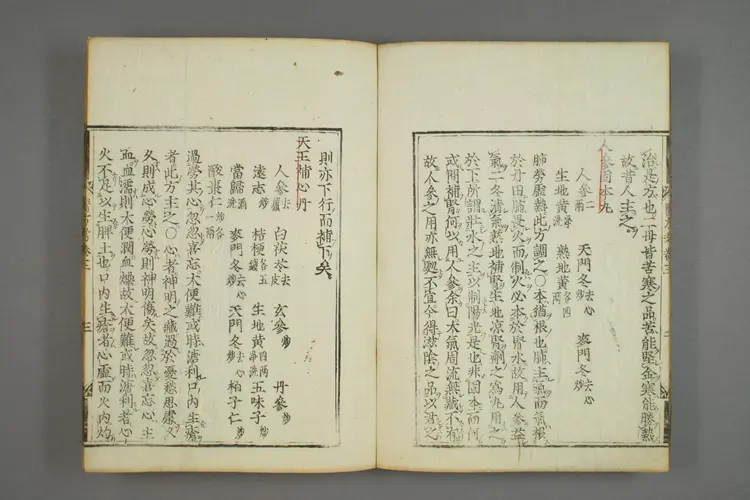 治是方也二母皆苦寒之品苦能堅金寒能勝熱
故昔人主之
人參固本丸
人參二兩 天門冬去心炒 麥門冬去心炒
生地黃酒洗 熟地黃各四兩
肺勞虛熱此方調之○本猶根也肺主氣而氣根
於丹田肺畏火而制火必本於腎水故用人參益
氣二冬清氣熟地補腎生地涼腎劑之為丸用之
於下所謂壯水之主以制陽光是也非固本而何
或問補腎何以用人參余曰大氣周流無臧不有
故人參之用亦無與不宜今得滋陰之品以君之
則亦下行而補下矣
天王補心丹
人參去蘆 白茯苓去皮 玄參炒 丹參炒
遠志炒 桔梗各五錢 生地黃四兩酒洗 五味子炒
當歸酒洗 麥門冬去心炒 天門冬去心炒 柏子仁炒
酸棗仁炒各一兩
過勞其心忽忽喜忘大便難或時溏利口內生瘡
者此方主之○心者神明之臟過於憂愁思慮久
久則成心勞心勞則神明傷矣故忽忽喜忘心主
血血濡則大便潤血燥故大便難或時溏利者心
火不足以生脾土也口內生瘡者心虛而火內灼